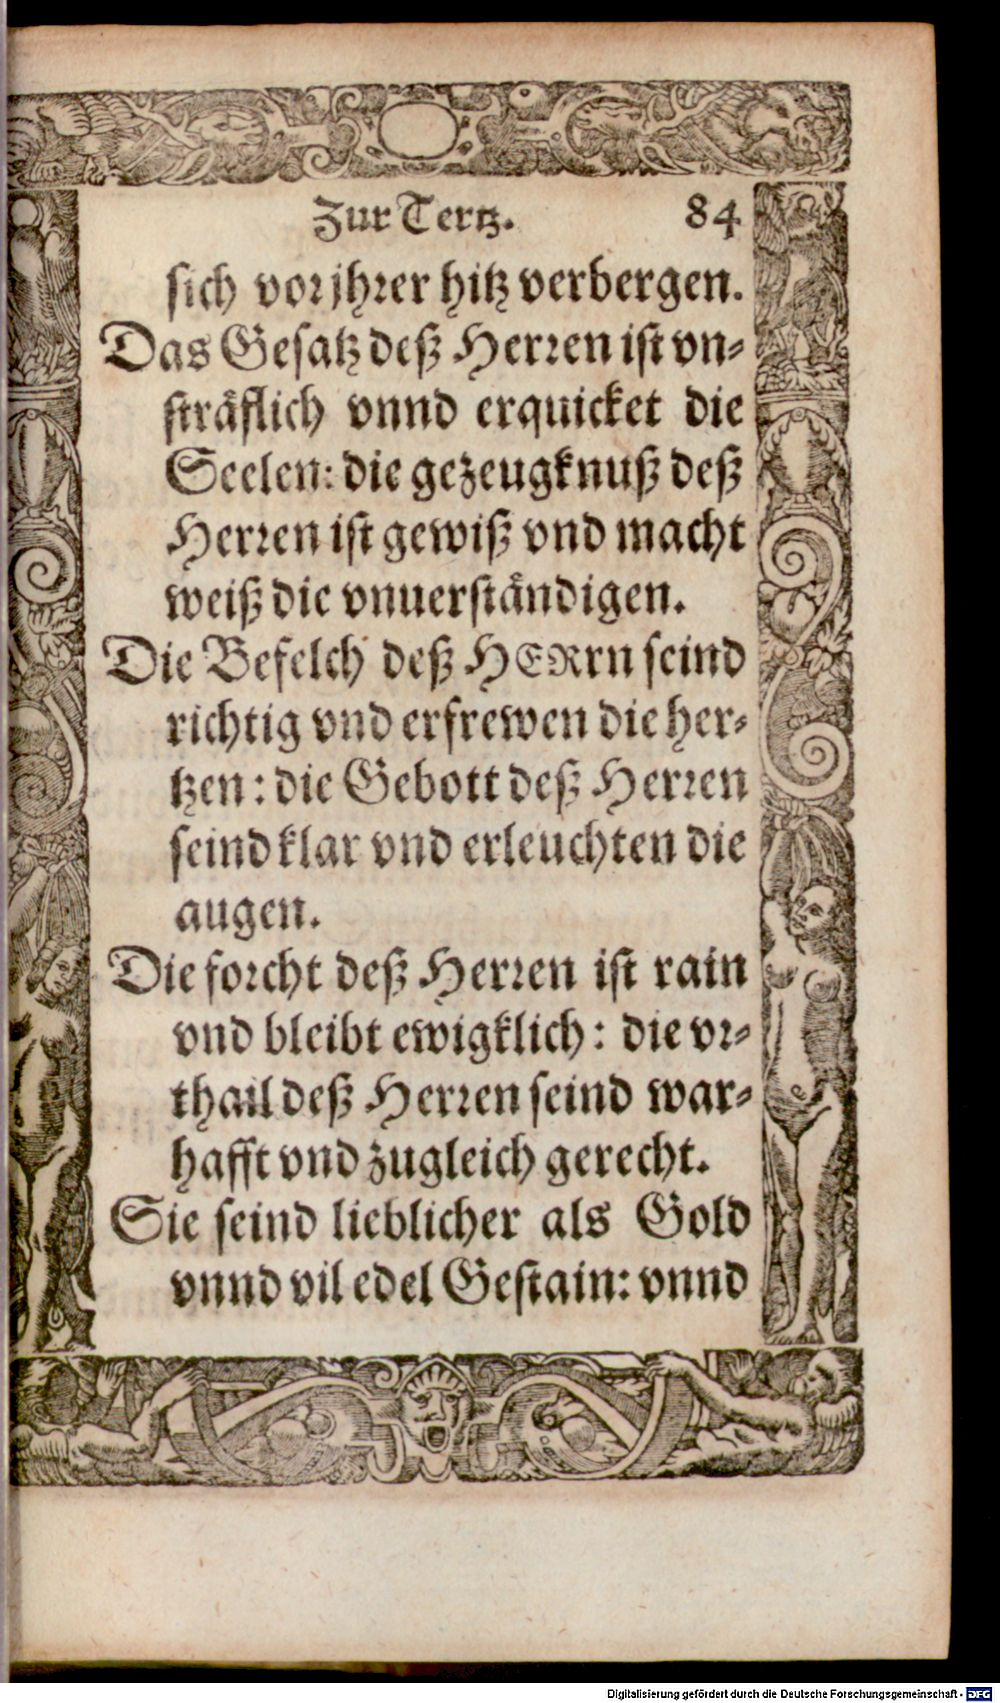 Zur Tertz. 84
sich vor jhrer hitz verbergen.
Das Gesatz deß Herren ist vn-
sträflich vnnd erquicket die
Seelen: die gezeugknuß deß
Herren ist gewiß vnd macht
weiß die vnuerständigen.
Die Befelch deß HERrn seind
richtig vnd erfrewen die her-
tzen: die Gebott deß Herren
seind klar vnd erleuchten die
augen.
Die forcht deß Herren ist rain
vnd bleibt ewigklich: die vr-
thail deß Herren seind war-
hafft vnd zugleich gerecht.
Sie seind lieblicher als Gold
vnnd vil edel Gestain: vnnd
Digitalisierung gefördert durch die Deutsche Forschungsgemeinschaft - DFG